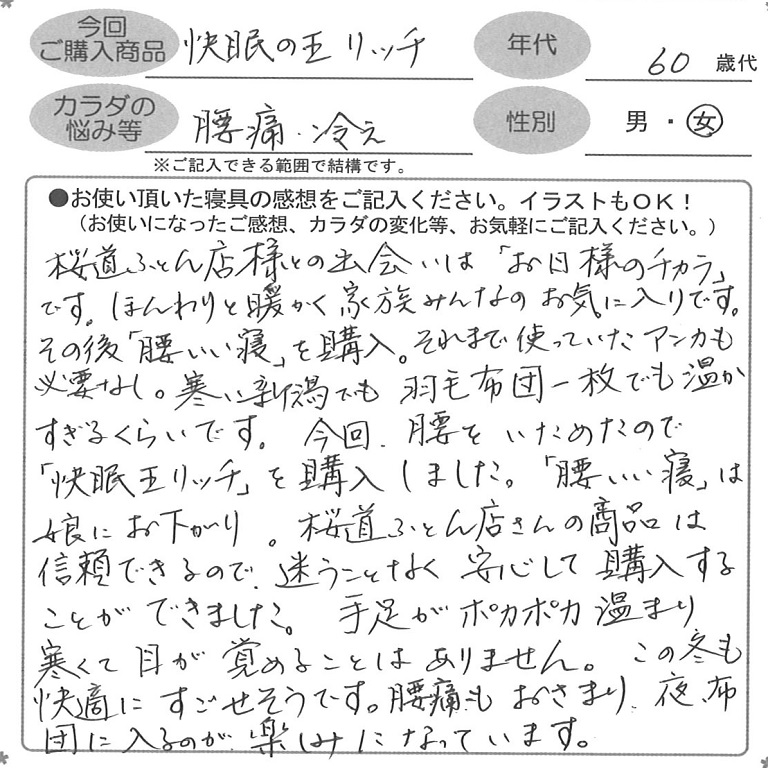 今回
ご購入商品
快眠の王 リッチ
年代
60 歳代
カラダの
悩み等
腰痛・冷え
性別
男・女
※ご記入できる範囲で結構です。
●お使い頂いた寝具の感想をご記入ください。イラストもOK!
(お使いになったご感想、カラダの変化等、お気軽にご記入ください。)
桜道ふとん店様との出会いは「お日様のチカラ」
です。ほんわりと暖かく家族みんなのお気に入りです。
その後「腰いい寝」を購入。それまで使っていたアンカも
必要なし。寒い新潟でも羽毛布団一枚でも温か
すぎるくらいです。今回、腰をいためたので
「快眠王リッチ」を購入しました。「腰いい寝」は
娘にお下がり。桜道ふとん店さんの商品は
信頼できるので、迷うことなく安心して購入する
ことができました。手足がポカポカ温まり
寒くて目が覚めることはありません。この冬も
快適にすごせそうです。腰痛もおさまり、夜、布
団に入るのが楽しみになっています。